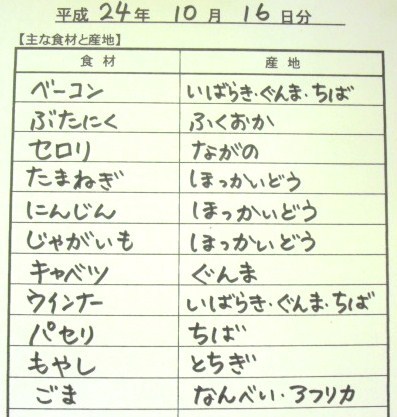 平成 24年 10月 16日分
【主な食材と産地】
食材 産地
ベーコン いばらき・ぐんま・ちば
ぶたにく ふくおか
セロリ ながの
たまねぎ ほっかいどう
にんじん ほっかいどう
じゃがいも ほっかいどう
キャベツ ぐんま
ウインナー いばらき・ぐんま・ちば
パセリ ちば
もやし とちぎ
ごま なんべい・アフリカ